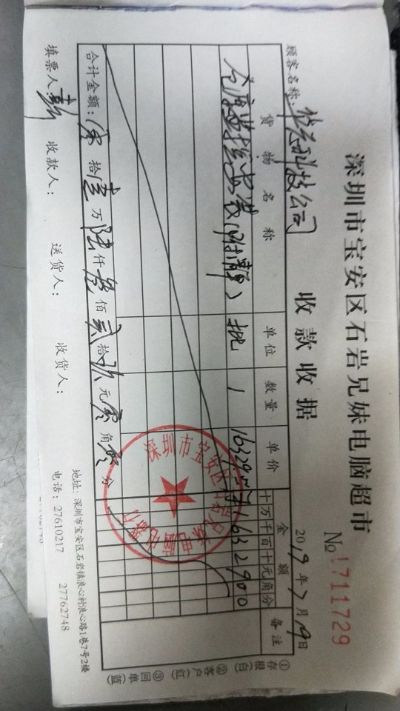 深圳市宝安区石岩兄妹电脑超市
收款收据
No 1711729
顾客名称
科技公司
2019年7月19日
货物名称 单位 数量 单价 金额 备注
十万千百十元角份
仓库监控安装(附清单) 批 1 16329 ¥1632900
合计金额: 零拾壹万陆仟叁佰贰拾玖元零角零分
填票人: 收款人: 送货人: 收货人:
地址: 深圳市宝安区石岩浪心村浪心路1巷7号2楼
电话: 27610217 27762748
①存根(白) ②客户(红) ③回单(蓝)
深圳市宝安区石岩兄妹电脑超市